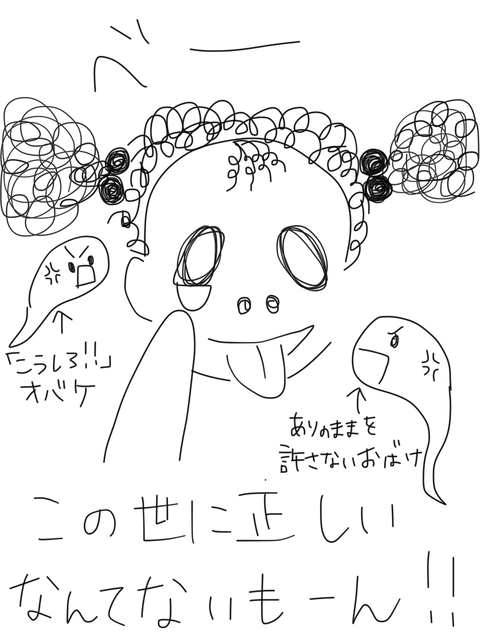 べー
「こうしろ!!」
オバケ
ありのままを
許さないおばけ
この世に正しい
なんてないもーん!!